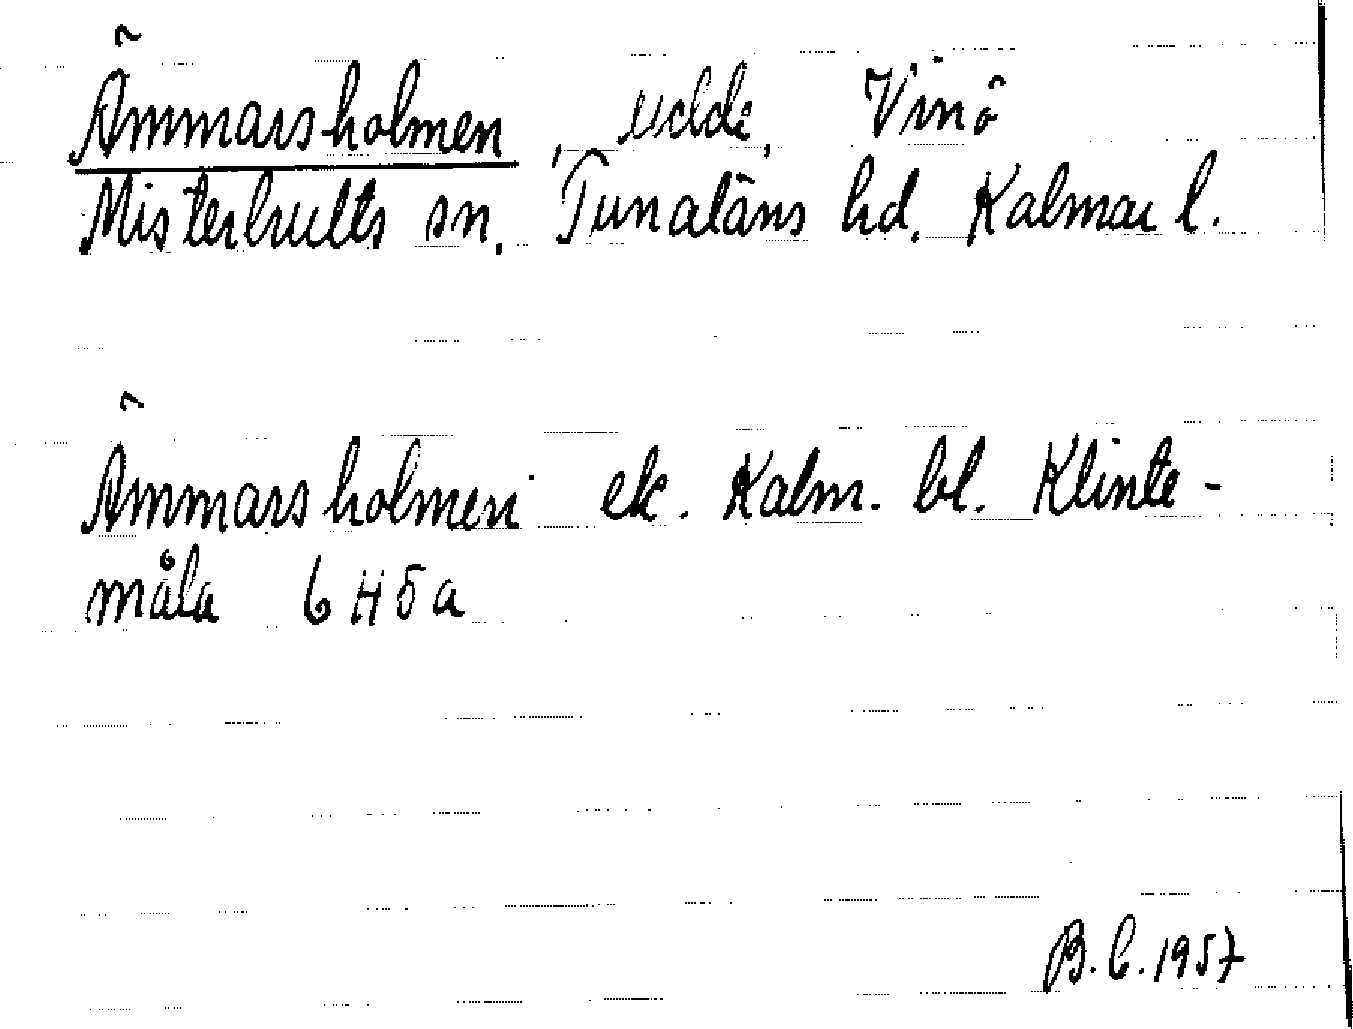 Ämmarsholmen, udde, Vinö
Misterhults sn. Tunaläns hd. Kalmar l.
Ämmarsholmen ek. Kalm. bl. Klinte-
måla 6 H 5 a
B. C. 1957